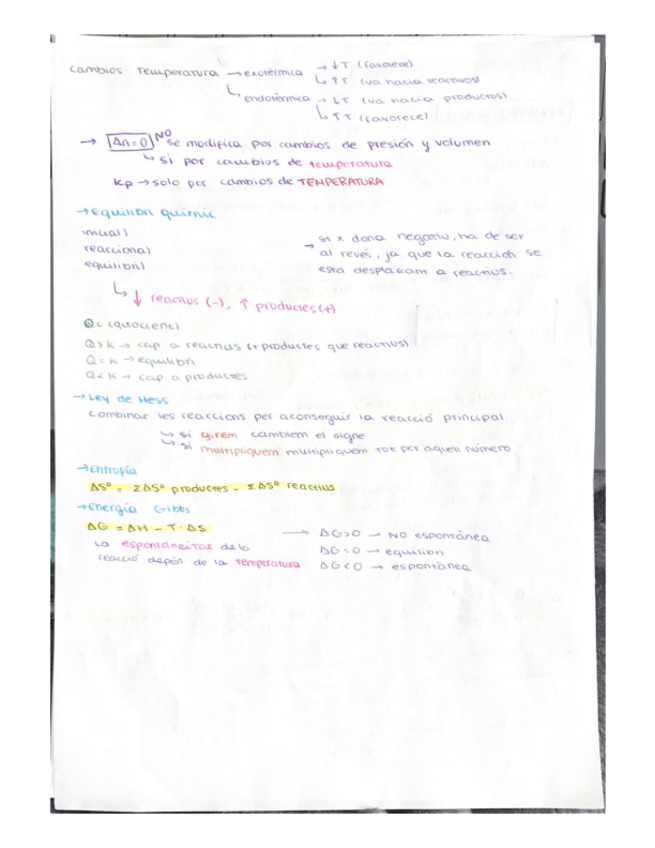 Cambios Temperatura → exotérmica → ↓T (favorece)
↳ ↑T (va hacia reactivos)
↳ endotérmica → ↓T (va hacia productos)
↳ ↑T (favorece)
→ Δn=0 NO se modifica por cambios de presión y volumen
↳ si por cambios de temperatura
Kp → solo por cambios de TEMPERATURA
→ Equilibri químic
inicial)
reacciona)
equilibri)
→ si x dona negatiu, ha de ser
al revés, ja que la reacció se
esta desplaçam a reactius.
↳ ↓ reactius (-), ↑ productes (+)
Qc (quocient)
Q>K → cap a reactius (+ productes que reactius)
Q=K → equilibri
Q<K → cap a productes
→ Ley de Hess
Combinar les reaccions per aconseguir la reacció principal
↳ si girem cambiem el signe
↳ si multipliquem multipliquem tot per aquell número
→ Entropía
ΔS° = ΣΔS° productes - ΣΔS° reactius
→ Energía Gibbs
ΔG = ΔH - T·ΔS
La espontaneitat de la
reacció depén de la temperatura
→ ΔG>0 → NO espontánea
ΔG=0 → equilibri
ΔG<0 → espontánea